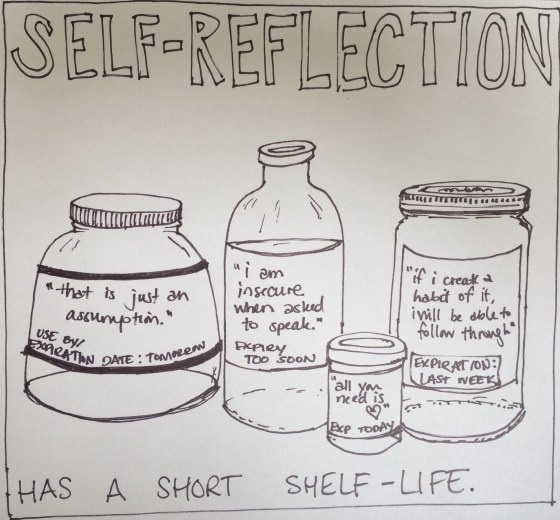 SELF-REFLECTION
"that is just an
assumption."
USE BY/
EXPIRATION DATE: TOMORROW
"i am
insecure
when asked
to speak."
EXPIRY
TOO SOON
"all you
need is
♡"
EXP TODAY
"if i create a
habit of it,
i will be able to
follow through"
EXPIRATION:
LAST WEEK
HAS A SHORT SHELF-LIFE.